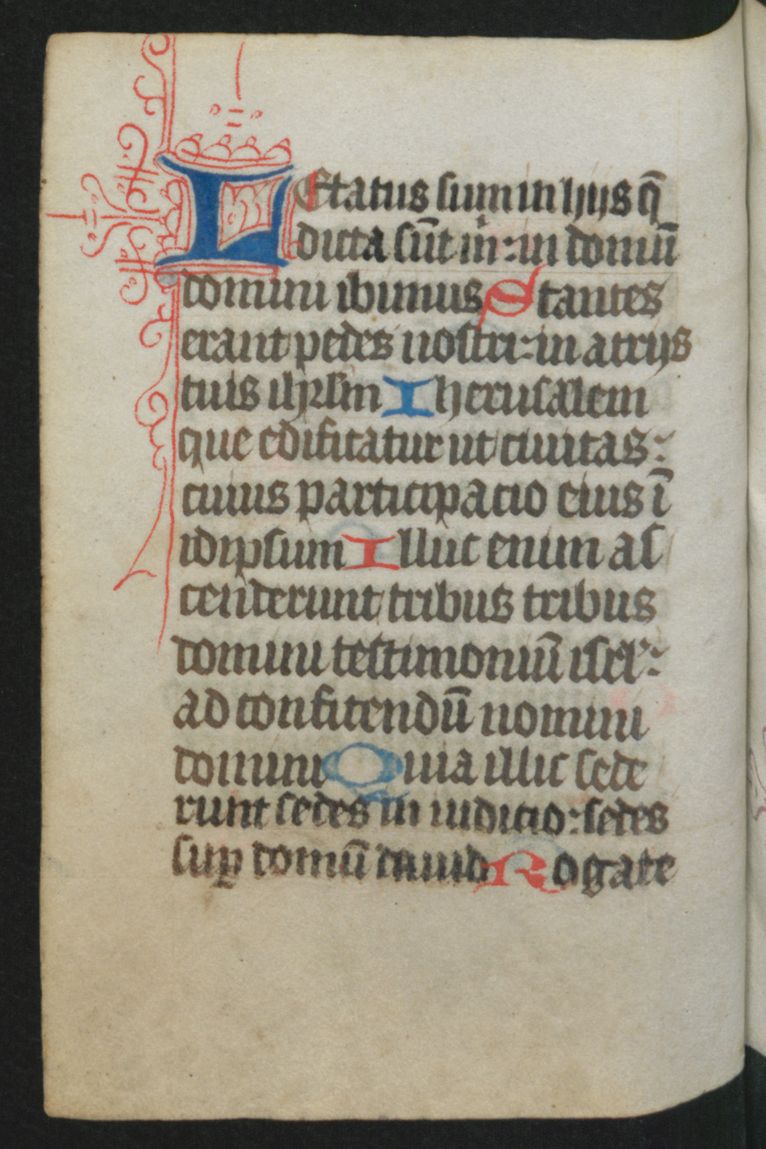 LEtatus sum in hijs q̄
dicta sūt m̄: in domū
domini ibimus Stantes
erant pedes nostri: in atrijs
tuis ihrl̄m Iherusalem
que edificatur ut ciuitas:
cuius participacio eius ī
idipsum Illuc enim as
cenderunt tribus tribus
domini testimoniū isrl̄:
ad confitendū nomini
domini Quia illic sede
runt sedes in iudicio: sedes
suꝑ domū dauid Rogate